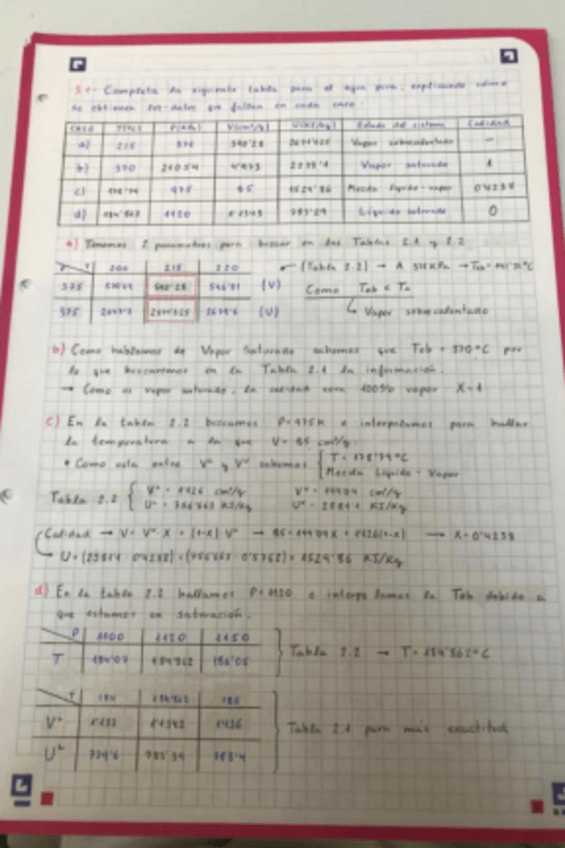 5.- Completa la siguiente tabla para el agua pura, explicando cómo
se obtienen los datos que faltan en cada caso.
CASO T(ºC) P(kPa) V(cm³/g) U(kJ/kg) Estado del sistema Calidad
a) 215 375 540'28 Vapor sobrecalentado -
b) 370 21054 Vapor saturado 1
c) 178'79 975 85 1524'86 Mezcla líquido-vapor 0'4238
d) 1120 1'1343 Líquido saturado 0
a) Tenemos 2 parámetros para buscar en las Tablas 2.1 y 2.2
T 200 215 220
375 540'28 546'81 (V)
375 (U)
(Tabla 2.2) → A 375 KPa → Teb =
Como Teb < Ta
Vapor sobrecalentado
b) Como hablamos de Vapor Saturado sabemos que Teb = 370ºC por
lo que buscaremos en la Tabla 2.1 la información.
→ Como es vapor saturado, la calidad será 100% vapor X=1
c) En la tabla 2.2 buscamos P=975 e interpolamos para hallar
la temperatura a la que V= 85 cm³/g.
• Como está entre Vᴸ y Vⱽ sabemos { T = 178'79ºC
Mezcla Líquido-Vapor
Tabla 2.2 { Vᴸ = 1'126 cm³/g Vⱽ = 199'04 cm³/g
Uᴸ = 756'663 KJ/Kg Uⱽ = 2581'1 KJ/Kg
Calidad → V = Vⱽ·X + (1-X) Vᴸ → 85 = 199'04X + 1'126(1-X) → X = 0'4238
U = (2581'1·0'4238) + (756'663·0'5762) = 1524'86 KJ/Kg
d) En la tabla 2.2 hallamos P=1120 e interpolamos la Teb debido a
que estamos en saturación.
P 1100 1120 1150
T 184'07 184'862 186'05
} Tabla 2.2 → T = 184'862ºC
T 184 184'862 186
Vᴸ 1'133 1'1343 1'136
Uᴸ 779'6 788'4
} Tabla 2.1 para más exactitud